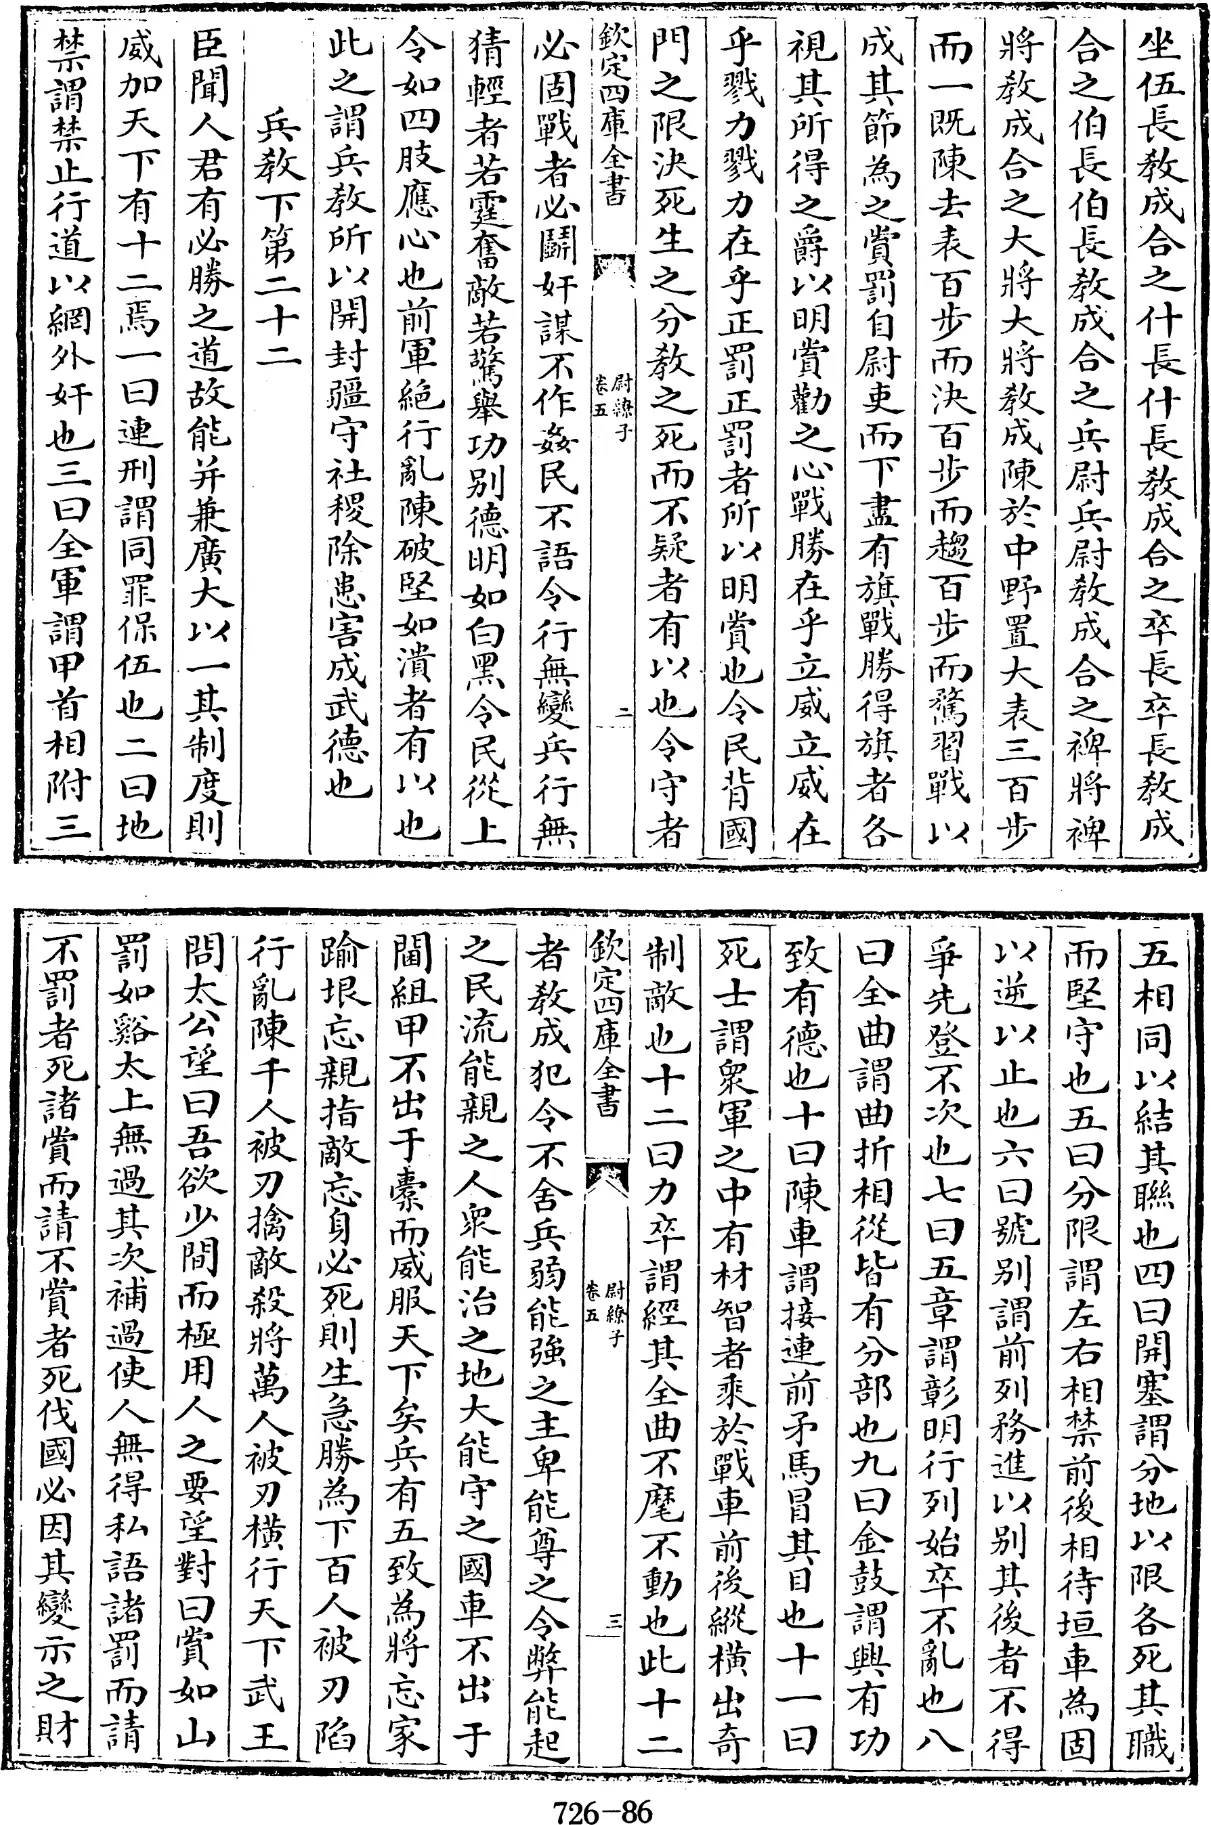 坐伍長教成合之什長什長教成合之卒長卒長教成
合之伯長伯長教成合之兵尉兵尉教成合之裨將裨
將教成合之大將大將教成陳於中野置大表三百步
而一既陳去表百步而決百步而趨百步而鶩習戰以
成其節為之賞罰自尉吏而下盡有旗戰勝得旗者各
視其所得之爵以明賞勸之心戰勝在乎立威立威在
乎戮力戮力在乎正罰正罰者所以明賞也令民背國
門之限決死生之分教之死而不疑者有以也令守者
欽定四庫全書
尉繚子
卷五
二
必固戰者必鬭奸謀不作姦民不語令行無變兵行無
猜輕者若霆奮敵若驚舉功別德明如白黑令民從上
令如四肢應心也前軍絕行亂陳破堅如潰者有以也
此之謂兵教所以開封疆守社稷除患害成武德也
兵教下第二十二
臣聞人君有必勝之道故能并兼廣大以一其制度則
威加天下有十二焉一曰連刑謂同罪保伍也二曰地
禁謂禁止行道以網外奸也三曰全軍謂甲首相附三
五相同以結其聯也四曰開塞謂分地以限各死其職
而堅守也五曰分限謂左右相禁前後相待垣車為固
以逆以止也六曰號別謂前列務進以別其後者不得
爭先登不次也七曰五章謂彰明行列始卒不亂也八
曰全曲謂曲折相從皆有分部也九曰金鼓謂興有功
致有德也十曰陳車謂接連前矛馬冒其目也十一曰
死士謂眾軍之中有材智者乘於戰車前後縱橫出奇
制敵也十二曰力卒謂經其全曲不麾不動也此十二
欽定四庫全書
尉繚子
卷五
三
者教成犯令不舍兵弱能強之主卑能尊之令弊能起
之民流能親之人眾能治之地大能守之國車不出于
閫組甲不出于橐而威服天下矣兵有五致為將忘家
踰垠忘親指敵忘身必死則生急勝為下百人被刃陷
行亂陳千人被刃擒敵殺將萬人被刃橫行天下武王
問太公望曰吾欲少間而極用人之要望對曰賞如山
罰如谿太上無過其次補過使人無得私語諸罰而請
不罰者死諸賞而請不賞者死伐國必因其變示之財
726-86